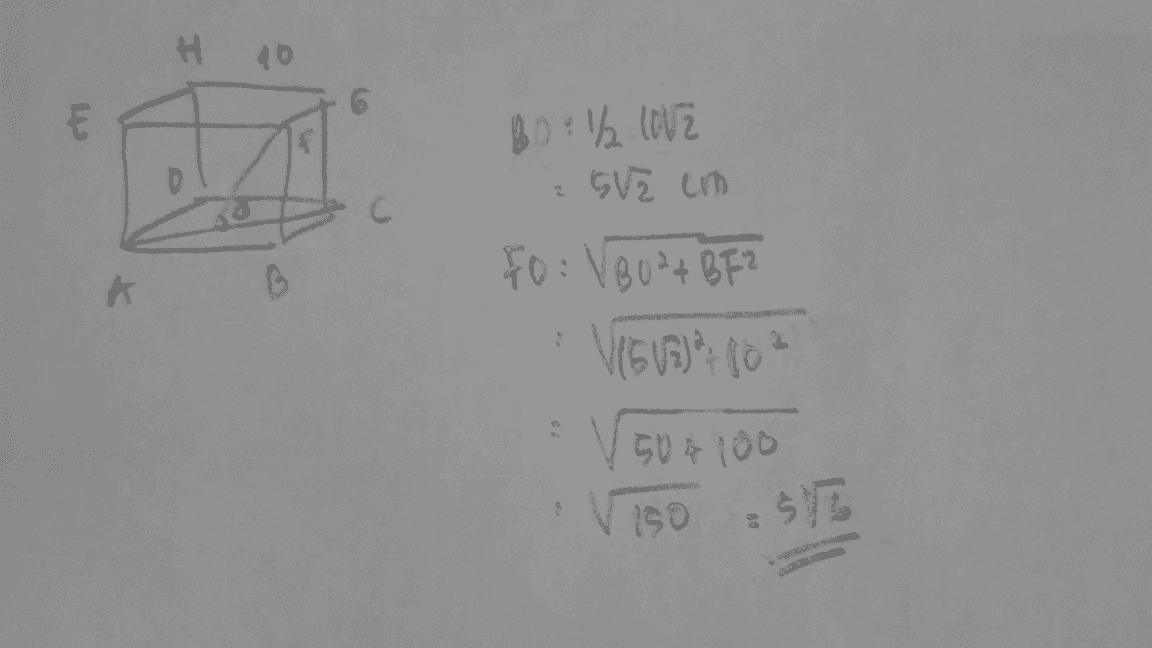 H 10
E G
F
D
O C
A B
BO : 1/2 . 10√2
= 5√2 cm
FO : √BO²+BF²
: √(5√2)²+10²
= √50+100
: √150 = 5√6